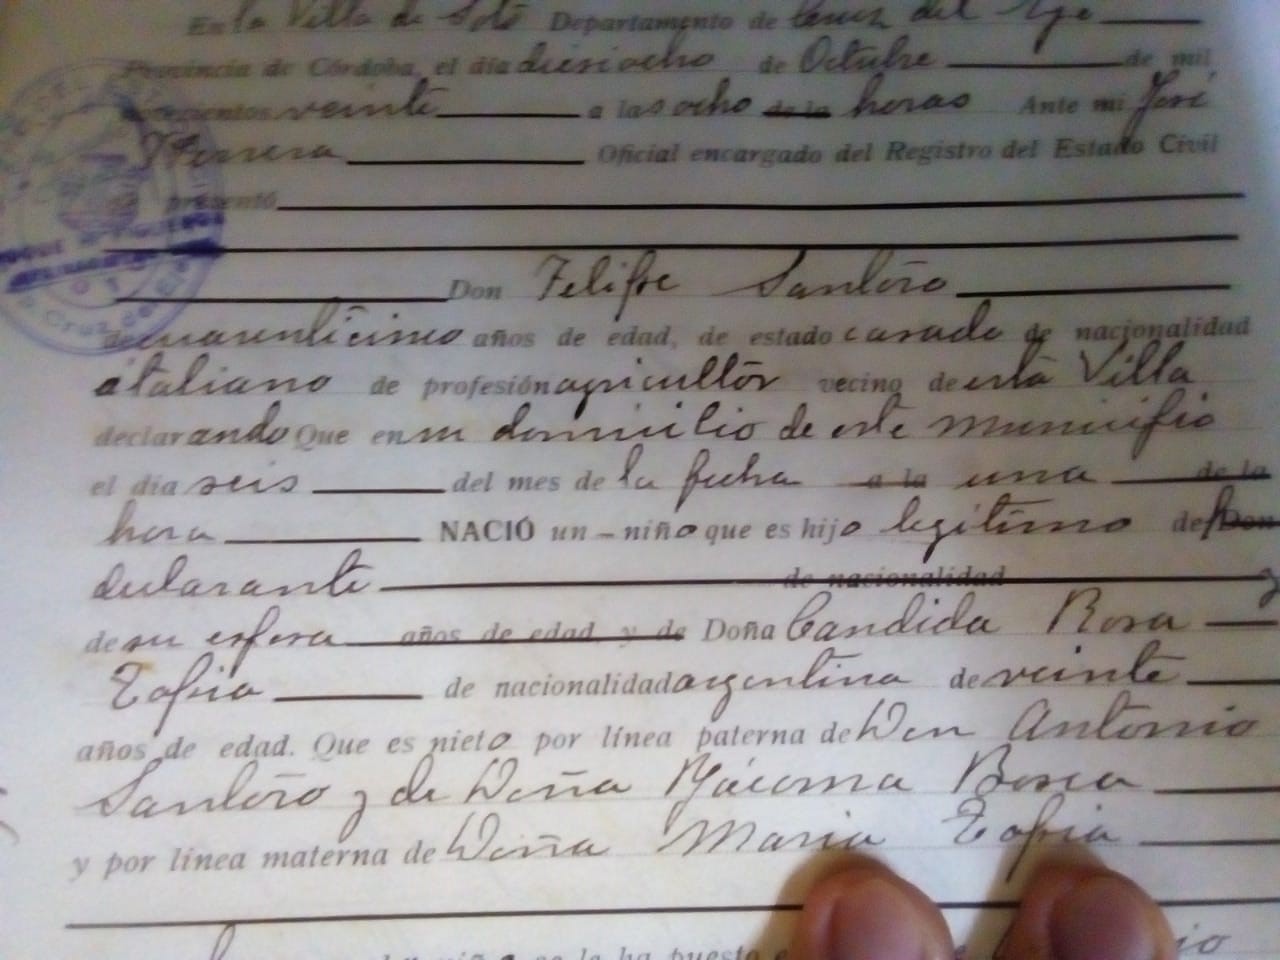 En la Villa de Soto Departamento de Cruz del Eje
Provincia de Córdoba, el día diesiocho de Octubre de mil
novecientos veinte a las ocho de la horas Ante mi José
Herrera Oficial encargado del Registro del Estado Civil
se presentó
Don Felipe Santoro
de cuarenticinco años de edad, de estado casado de nacionalidad
italiano de profesión agricultor vecino de esta Villa
declarando Que en su domicilio de este municipio
el día seis del mes de la fecha a la una de la
hora NACIÓ un niño que es hijo legítimo del Don
declarante de nacionalidad y
de su esposa años de edad y de Doña Candida Rosa
Tapia de nacionalidad argentina de veinte
años de edad. Que es nieto por línea paterna de Don Antonio
Santoro y de Doña Yácoma
y por línea materna de Doña Maria Tapia
se le ha puesto